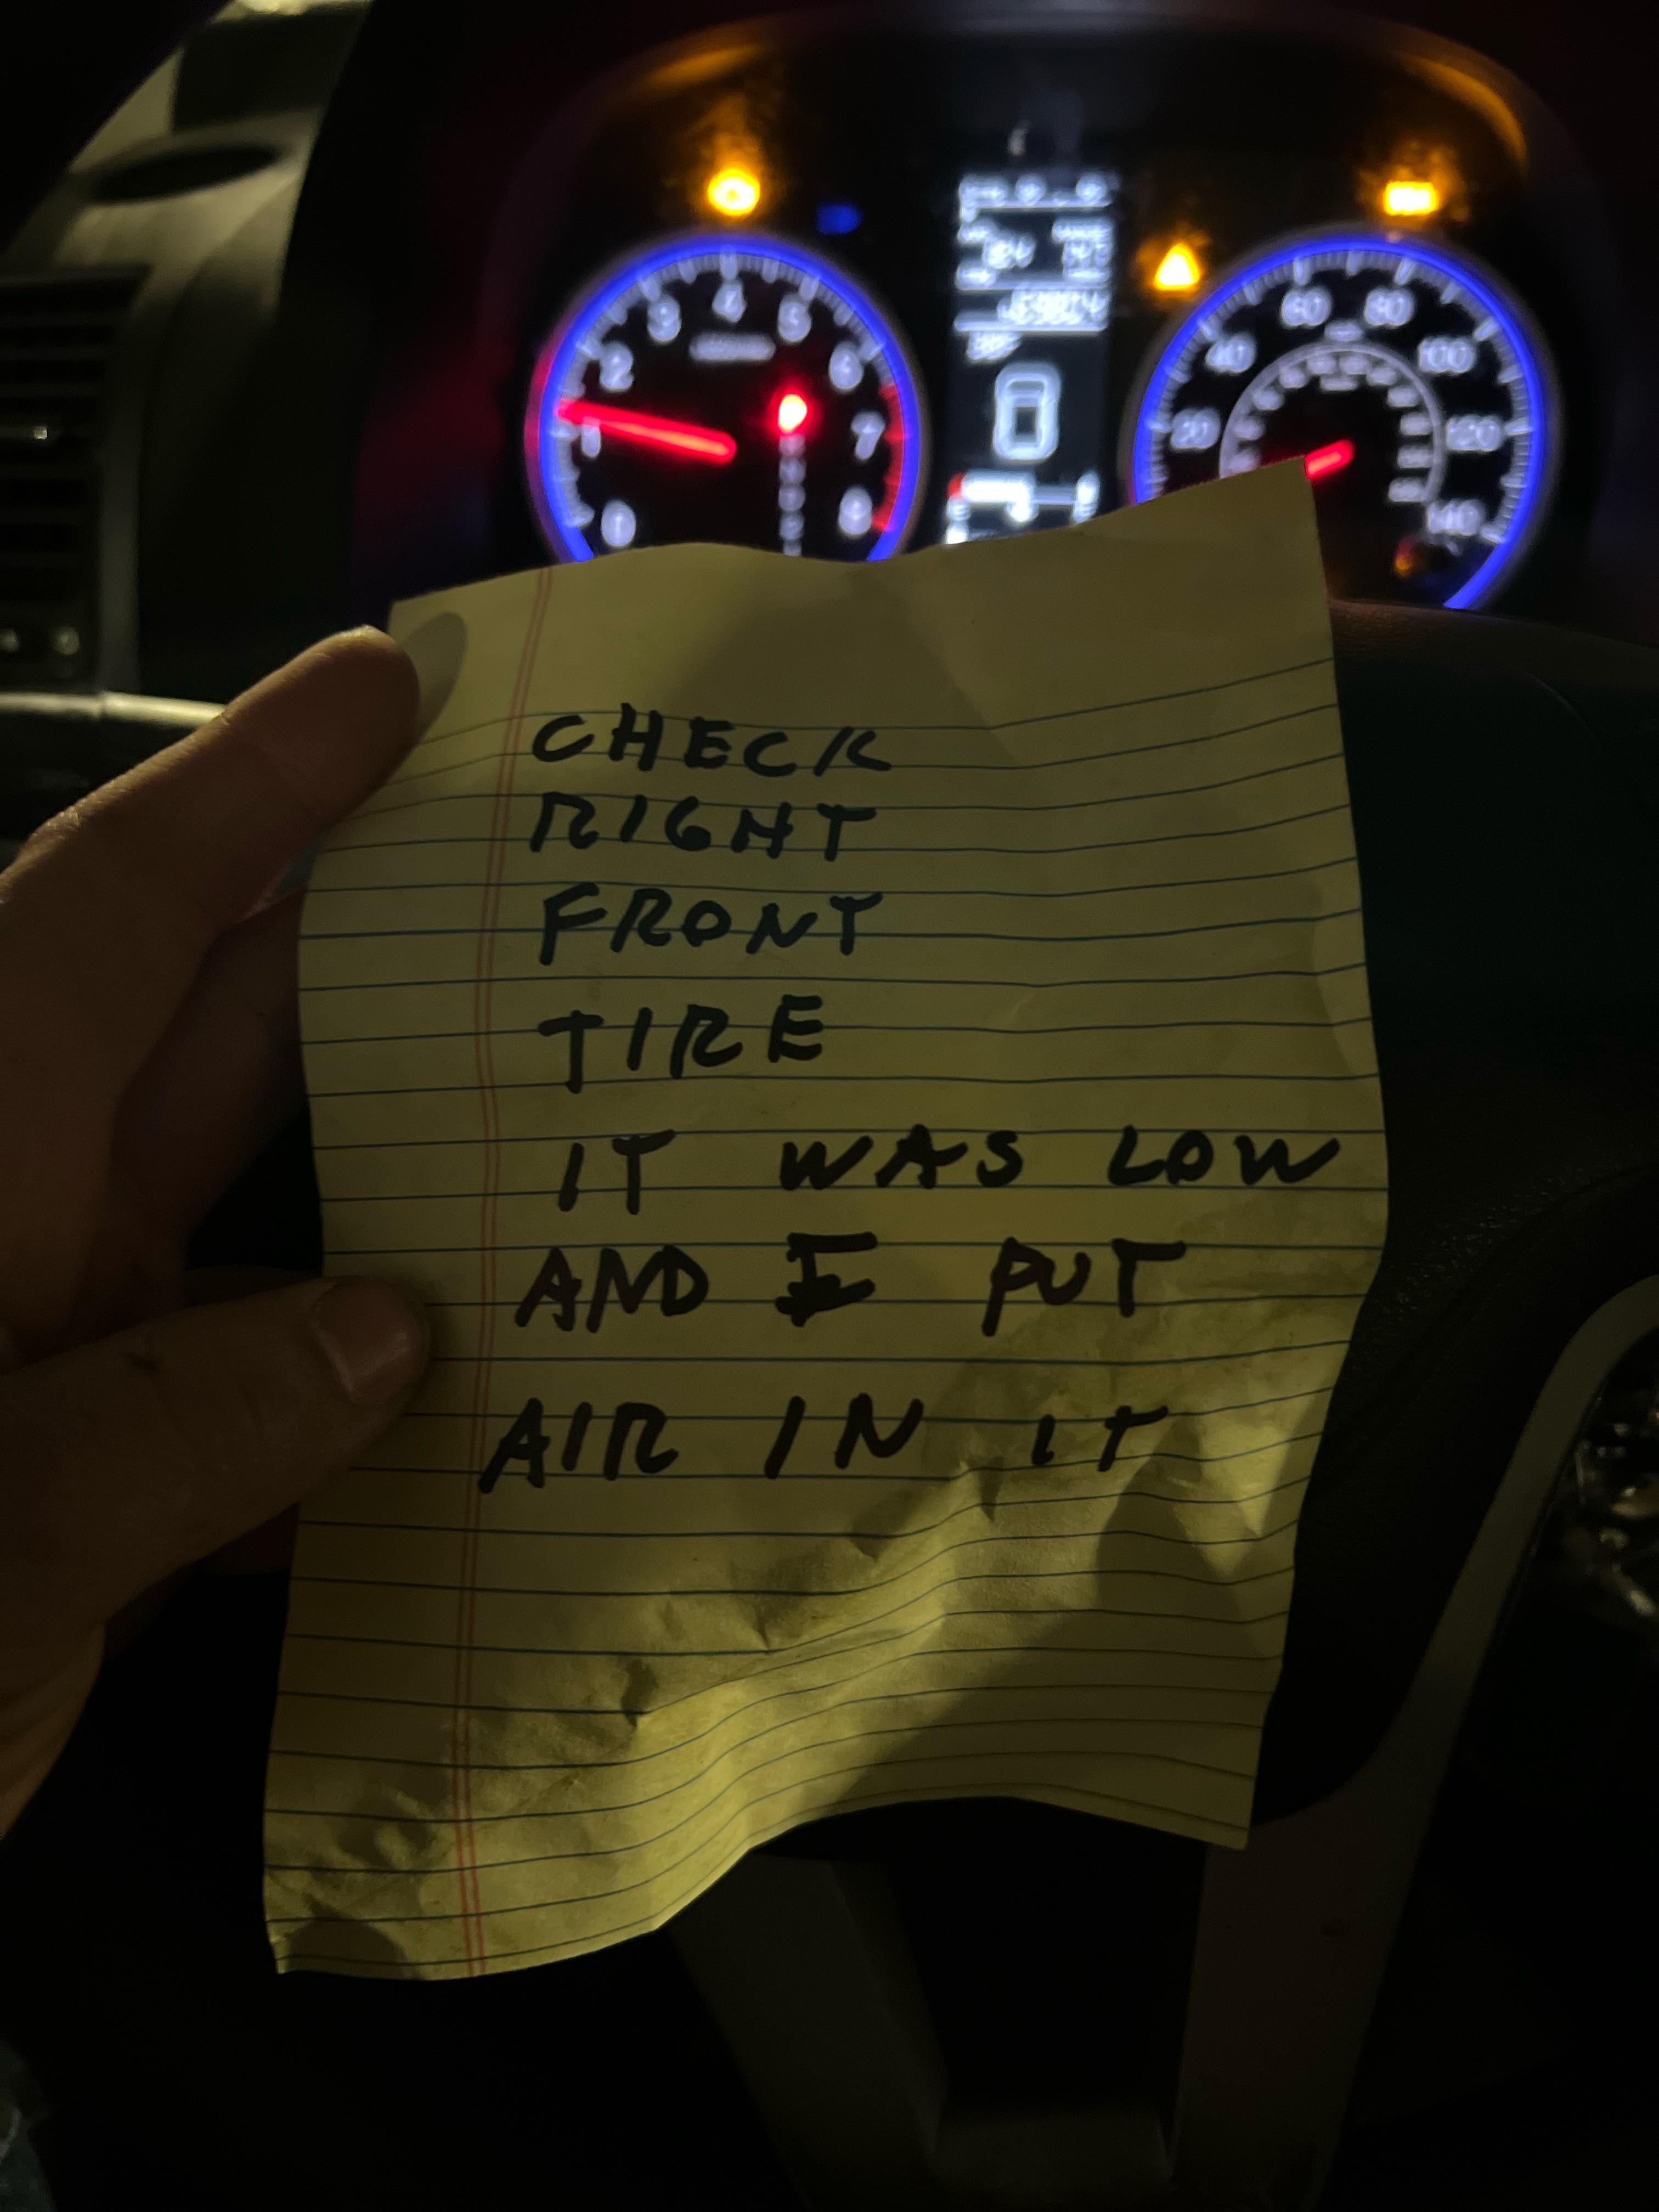 2
3
4
5
6
7
8
1
0
20
40
60
80
100
120
140
CHECK
RIGHT
FRONT
TIRE
IT WAS LOW
AND I PUT
AIR IN IT